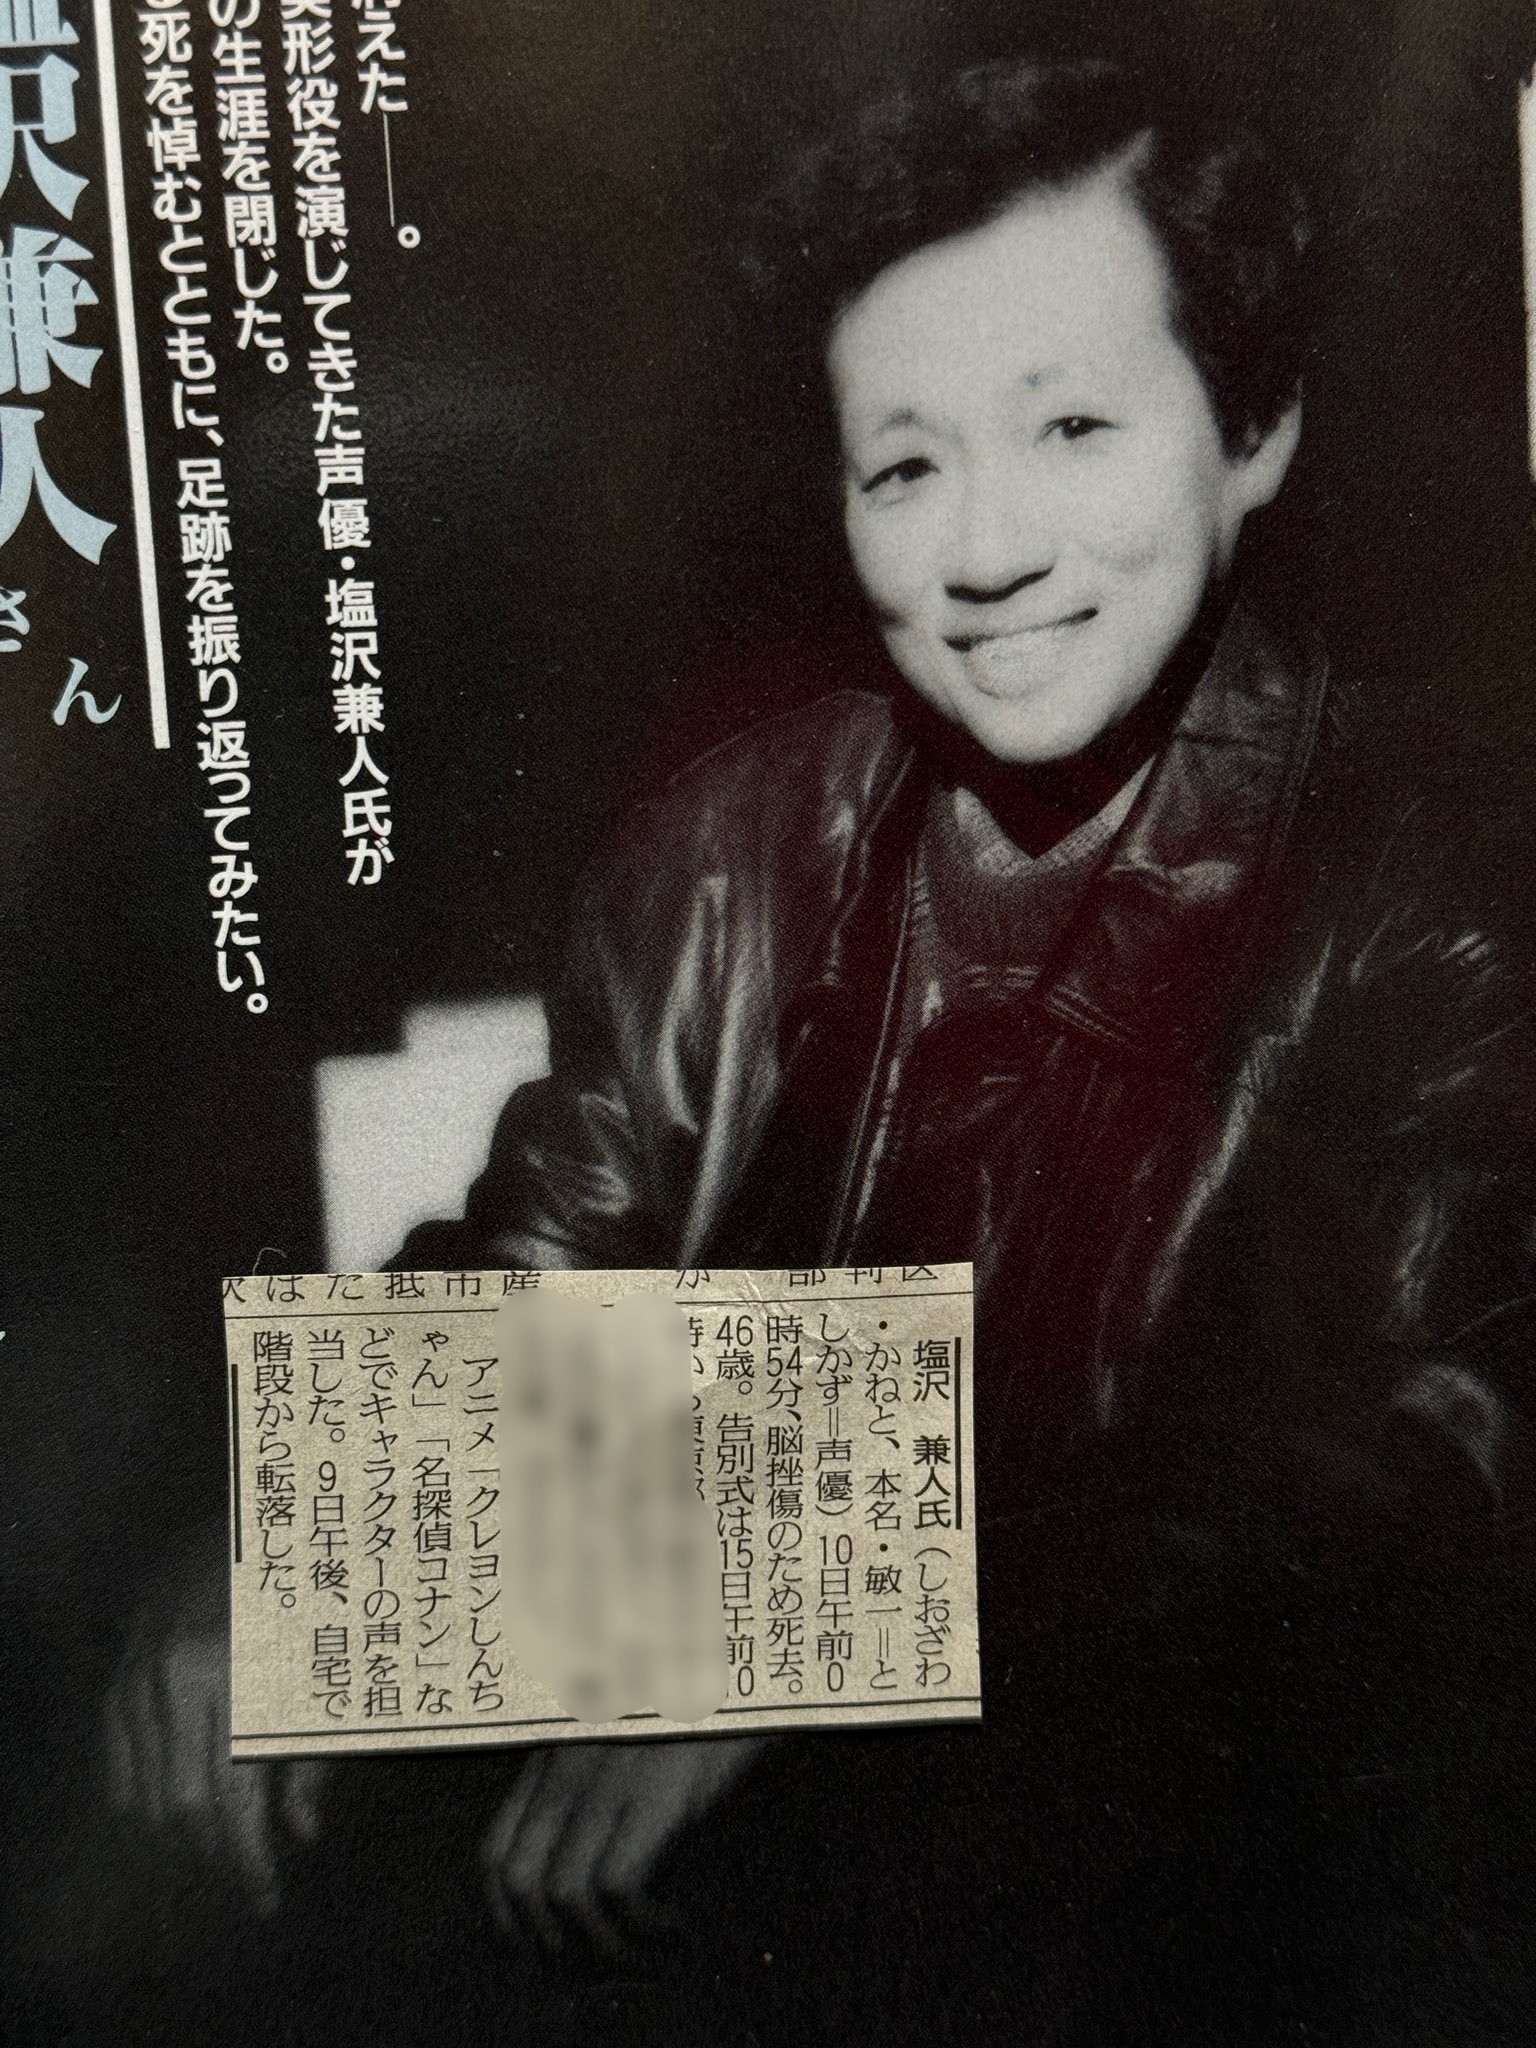 沢兼人
さん
消えた――。
美形役を演じてきた声優・塩沢兼人氏が
の生涯を閉じた。
死を悼むとともに、足跡を振り返ってみたい。
塩沢 兼人氏(しおざわ
・かねと、本名・敏一=と
しかず=声優)10日午前0
時54分、脳挫傷のため死去。
46歳。告別式は15日午前10
アニメ「クレヨンしんち
ゃん」「名探偵コナン」な
どでキャラクターの声を担
当した。9日午後、自宅で
階段から転落した。